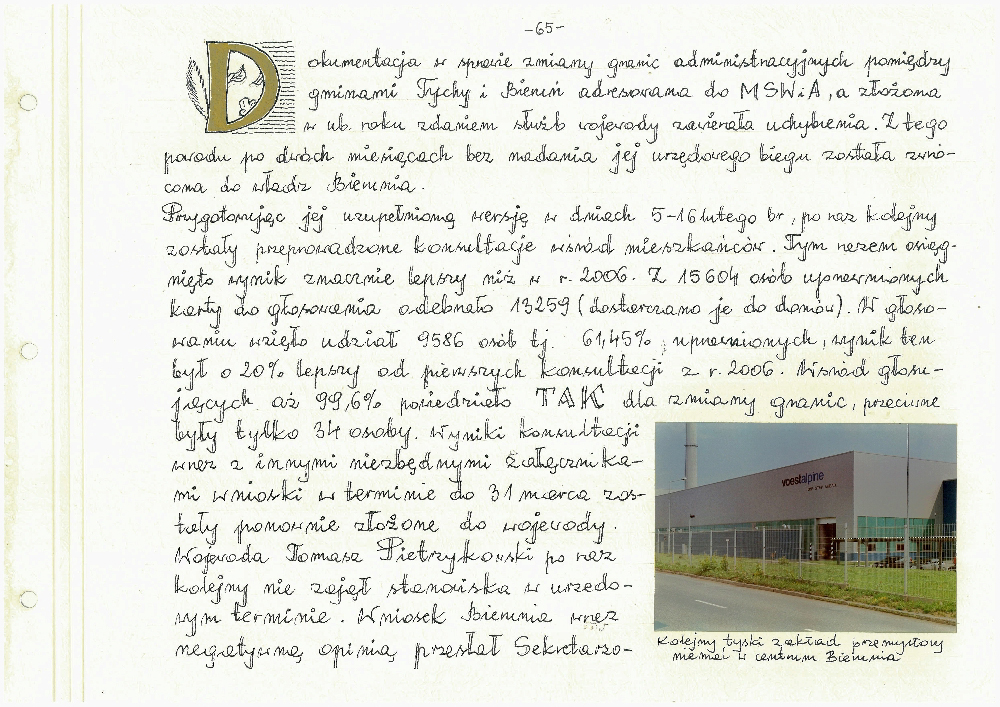 -65-
Dokumentacja w sprawie zmiany granic administracyjnych pomiędzy
gminami Tychy i Bieruń adresowana do MSWiA, a złożona
w ub. roku zdaniem służb wojewody zawierała uchybienia. Z tego
powodu po dwóch miesiącach bez nadania jej urzędowego biegu została zwró-
cona do władz Bierunia.
Przygotowując jej uzupełnioną wersję w dniach 5-16 lutego br, po raz kolejny
zostały przeprowadzone konsultacje wśród mieszkańców. Tym razem osiąg-
nięto wynik znacznie lepszy niż w r. 2006. Z 15604 osób uprawnionych
karty do głosowania odebrało 13259 (dostarczano je do domów). W głoso-
waniu wzięło udział 9586 osób tj. 61,45% uprawnionych, wynik ten
był o 20% lepszy od pierwszych konsultacji z r. 2006. Wśród głosu-
jących aż 99,6% powiedziało TAK dla zmiany granic, przeciwne
były tylko 34 osoby. Wyniki konsultacji
wraz z innymi niezbędnymi załącznika-
mi wnioski w terminie do 31 marca zos-
tały ponownie złożone do wojewody.
Wojewoda Tomasz Pietrzykowski po raz
kolejny nie zajął stanowiska w urzędo-
wym terminie. Wniosek Bierunia wraz
negatywną opinią przesłał Sekretarzo-
voestalpine
Kolejny tyski zakład przemysłowy
niemal w centrum Bierunia